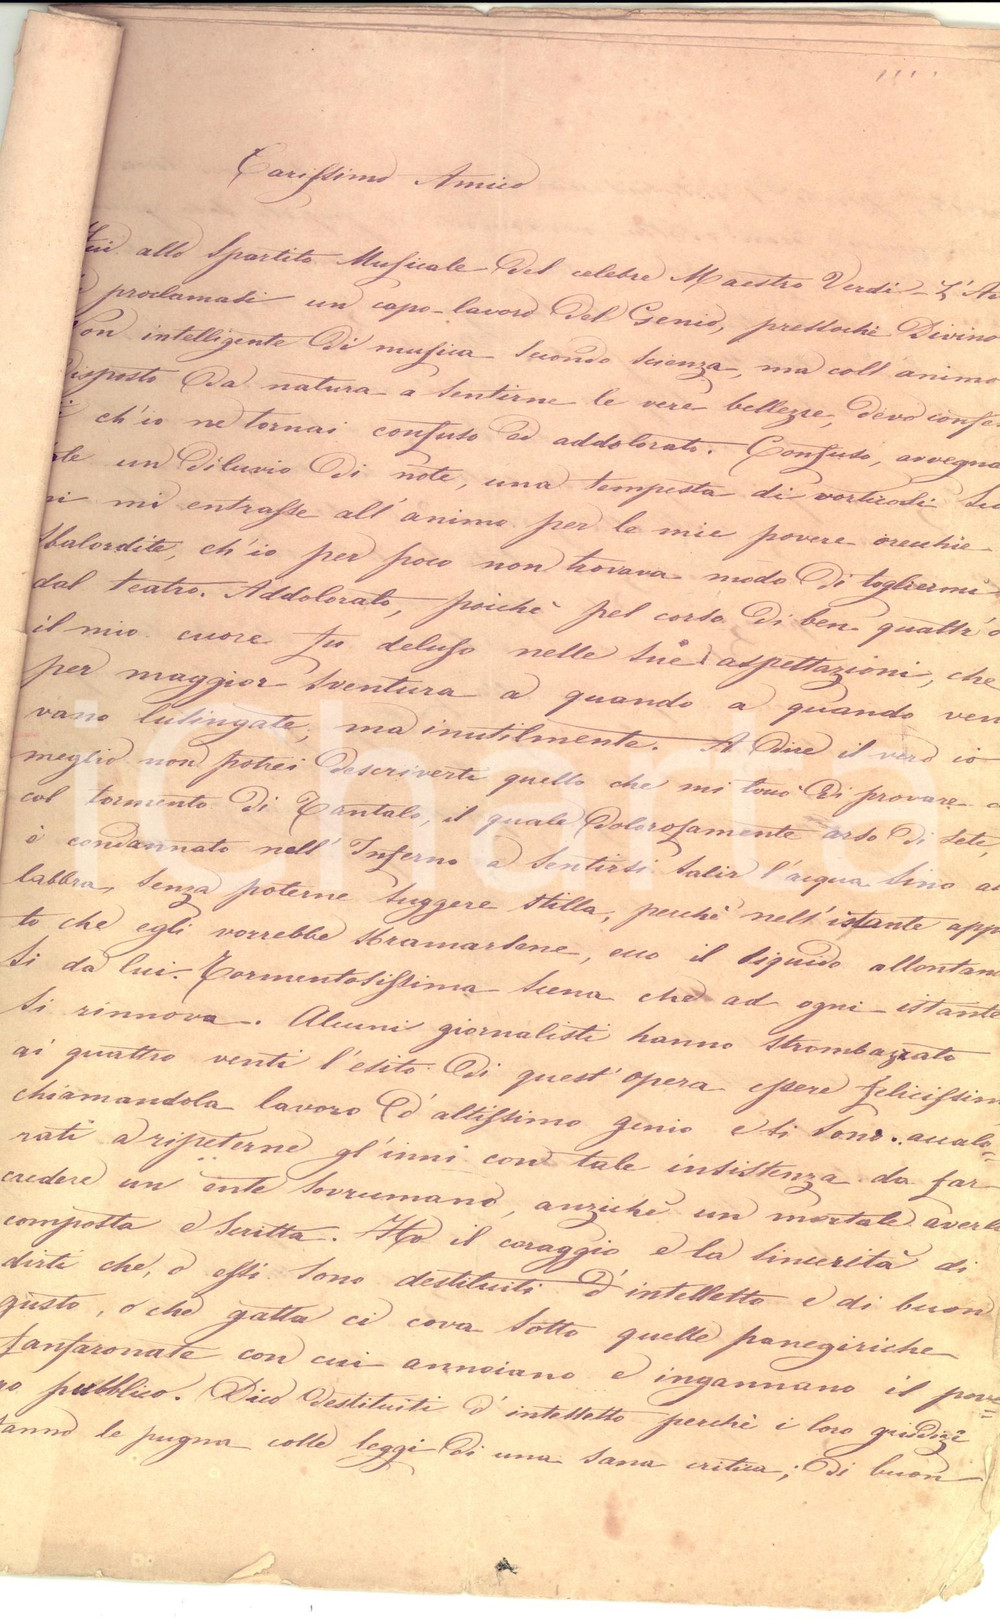 Carissimo Amico
Fui allo Spartito Musicale del celebre Maestro Verdi - L'A
proclamasi un capo-lavoro del Genio, pressochè Divino
Non intelligente di musica secondo scienza, ma coll'animo
disposto da natura a sentirne le vere bellezze, devo confes
ch'io ne tornai confuso ed addolorato. Confuso, avvegna
un diluvio di note, una tempesta di vorticosi su
ni mi entrasse all'animo per le mie povere orecchie
sbalordite, ch'io per poco non trovava modo di togliermi
dal teatro. Addolorato, poichè pel corso di ben quattr'o
il mio cuore fu deluso nelle sue aspettazioni, che
per maggior sventura a quando a quando veni
vano lusingate, ma inutilmente. A dire il vero io
meglio non potrei descriverti quello che mi toccò di provare
col tormento di Tantalo, il quale dolorosamente arso di sete,
è condannato nell'Inferno a sentirsi salir l'acqua sino a
labbra, senza poterne suggere stilla, perchè nell'istante app
to che egli vorrebbe sbramarsene, ecco il liquido allontana
si da lui. Tormentosissima scena che ad ogni istante
si rinnova. Alcuni giornalisti hanno strombazzato
ai quattro venti l'esito di quest'opera essere felicissim
chiamandola lavoro d'altissimo genio e si sono accalo=
rati a ripeterne gl'inni con tale insistenza da far
credere un ente sovrumano, anzichè un mortale averla
composta e scritta. Ho il coraggio e la sincerità di
dirti che, o essi sono destituiti d'intelletto e di buon
gusto, o che gatta ci cova sotto quelle panegiriche
fanfaronate con cui annoiano e ingannano il pove=
ro pubblico. Dico destituiti d'intelletto perchè i loro giudizi
fanno le pugna colle leggi di una sana critica; di buon